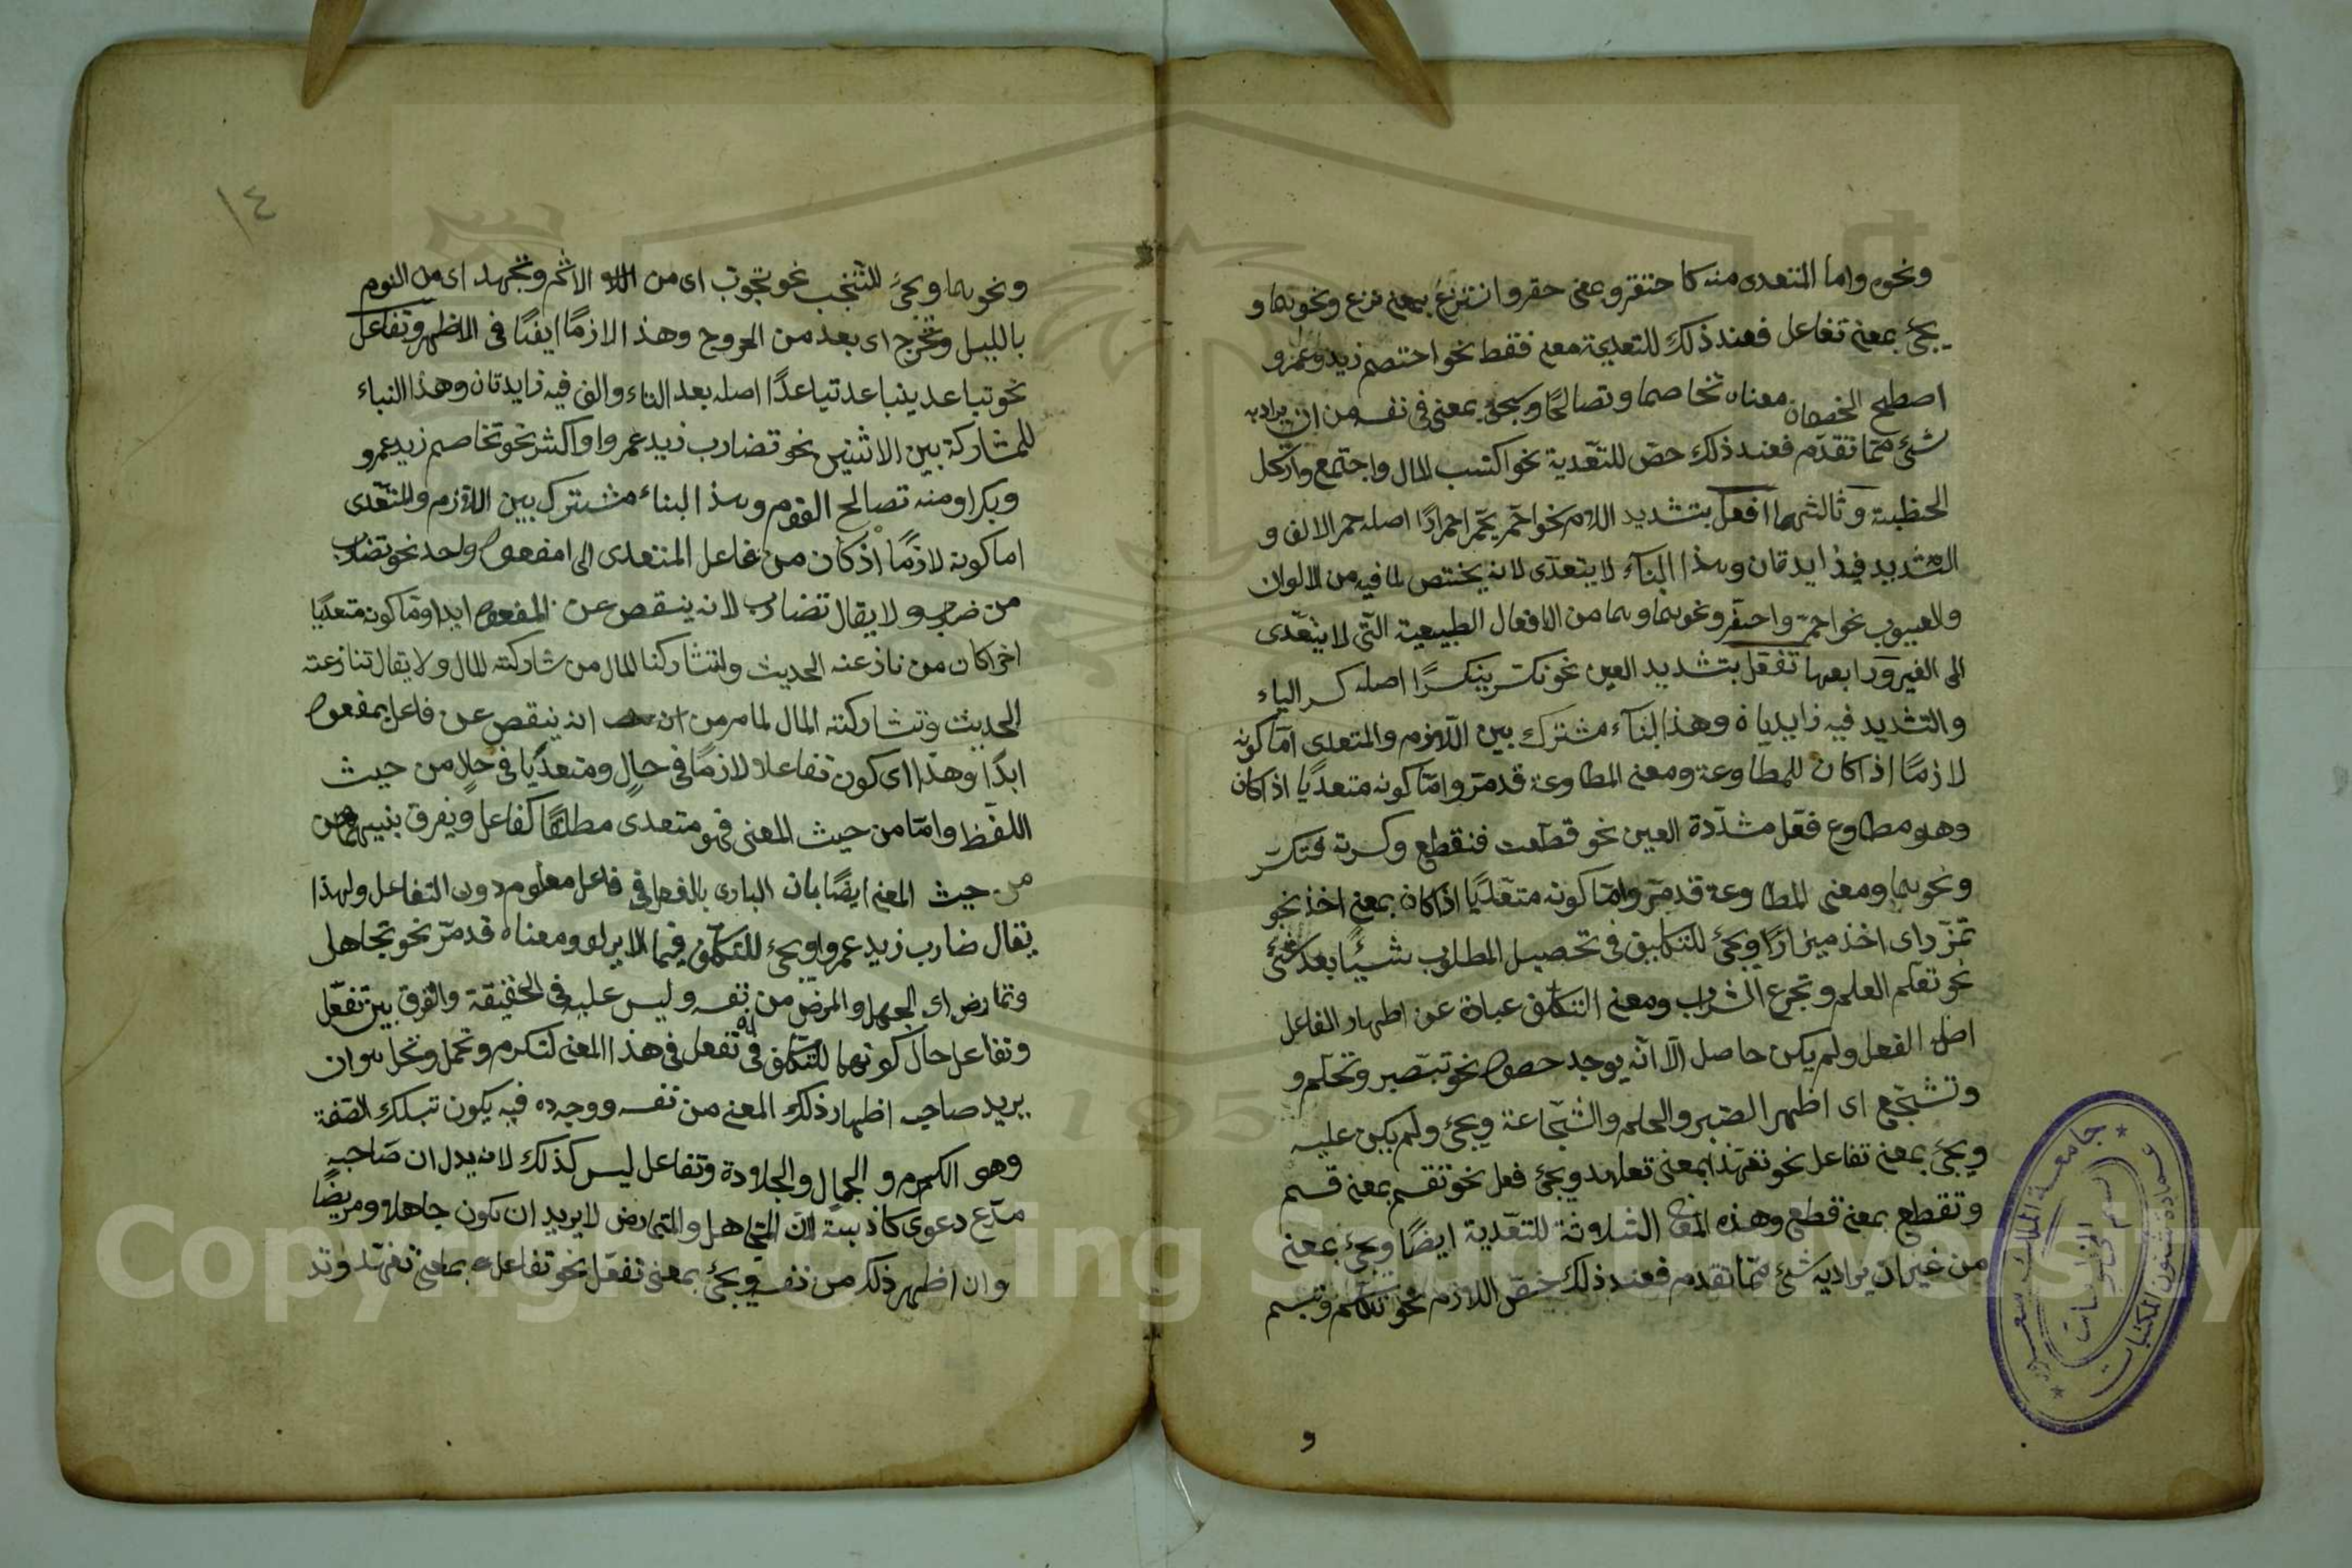 ونحوه واما المتعدى منه كا حتقر وبمعنى حقر وانتزع بمعنى نزع ونحوهما و
يجئ بمعنى تفاعل فعند ذلك للتعدية معه فقط نحو اختصم زيد وعمرو
اصطلح الخصمان معناه تخاصما وتصالحا ويجئ بمعنى فى نفسه من ان يراد به
شئ مما تقدم فعند ذلك حض للتعدية نحو اكتسب المال واجتمع وارتحل
الخطبة وثالثها افعل بتشديد اللام نحو احمر يحمر احمرارا اصله حمر الالف و
التشديد فيه زايدتان وهذا البناء لا يتعدى لانه يختص لما فيه من الالوان
والعيوب نحو احمر واصفر ونحوهما وهما من الافعال الطبيعية التى لا يتعدى
الى الغير ورابعها تفعل بتشديد العين نحو تكسر يتكسر تكسرا اصله كسر الياء
والتشديد فيه زايديان وهذا البناء مشترك بين اللازم والمتعدى اما كونه
لازما اذا كان للمطاوعة ومعنى المطاوعة قد مر واما كونه متعديا اذا كان
وهو مطاوع فعل مشددة العين نحو قطعت فنقطع وكسرته فتكسر
ونحوهما ومعنى المطاوعة قد مر واما كونه متعديا اذا كان بمعنى اخذ نحو
تمزر اى اخذ ميزارا ويجئ للتكليف فى تحصيل المطلوب شيئا بعد شئ
نحو تعلم العلم وتجرع الشراب ومعنى التكلف عبارة عن اظهار الفاعل
اصل الفعل ولم يكن حاصل الا انه يوجد حصول نحو تبصبر وتحلم و
وتشجع اى اظهر الصبر والحلم والشجاعة ويجئ ولم يكن عليه
ويجئ بمعنى تفاعل نحو تعهد بمعنى تعاهد ويجئ فعل نحو تقسم بمعنى قسم
وتقطع بمعنى قطع وهذه المعانى الثلاثة للتعدية ايضا ويجئ بمعنى
من غير ان يراد به شئ مما تقدم فعند ذلك خص اللازم نحو تكلم وتبسم
و
١٤
ونحوهما ويجئ للتجنب نحو تحوب اى من الاثم وتهجد اى من النوم
بالليل وتخرج اى بعد من الخروج وهذا لازما ايضا فى الاظهر وتفاعل
نحو تباعد يتباعد تباعدا اصله بعد التاء والف فيه زايدتان وهذا البناء
للمشاركة بين الاثنين نحو تضارب زيد عمروا واكثر نحو تخاصم زيد عمرو
وبكرا ومنه تصالح القوم وهذا البناء مشترك بين اللازم والمتعدى
اما كونه لازما اذ كان من فاعل المتعدى الى مفعول واحد نحو تضارب
من ضارب ولا يقال تضارب لانه ينقص عن المفعول ابدا وما كونه متعديا
اخر كان من نازعنه الحديث وتشاركنا المال من شاركته المال ولا يقال تنازعته
الحديث وتشاركته المال لما مر من ان انه ينقص عن فاعل بمفعول
ابدا وهذا اى كون تفاعلا لازما فى حال ومتعديا فى حال من حيث
اللفظ واما من حيث المعنى فهو متعدى مطلقا كفاعل ويفرق بينهما من
من حيث المعنى ايضا بان البادى بالفعل فى فاعل معلوم دون التفاعل ولهذا
يقال ضارب زيد عمروا ويجئ للتكلف فيما لا يراد ومعناه قد مر نحو تجاهل
وتمارض اى الجهل والمرض من نفسه وليس عليه فى الحقيقة والفرق بين تفعل
وتفاعل حال كونهما للتكلف فى انه تفعل فى هذا المعنى لتكرم وتجمل وتجلد هو ان
يريد صاحبه اظهار ذلك المعنى من نفسه ووجوده فيه يكون تبلك الصفة
وهى الكرم و الجمال والجلادة وتفاعل ليس كذلك لانه يدل ان صاحبه
مدع دعوى كاذبة لان المتجاهل والمتمارض لا يريد ان يكون جاهلا ومريضا
وان اظهر ذلك من نفسه ويجئ بمعنى تفعل نحو تفاعله بمعنى تفهد وتد
جامعة الملك سعود
عمادة شئون المكتبات
قسم المخطوطات
Copyright © King Saud University